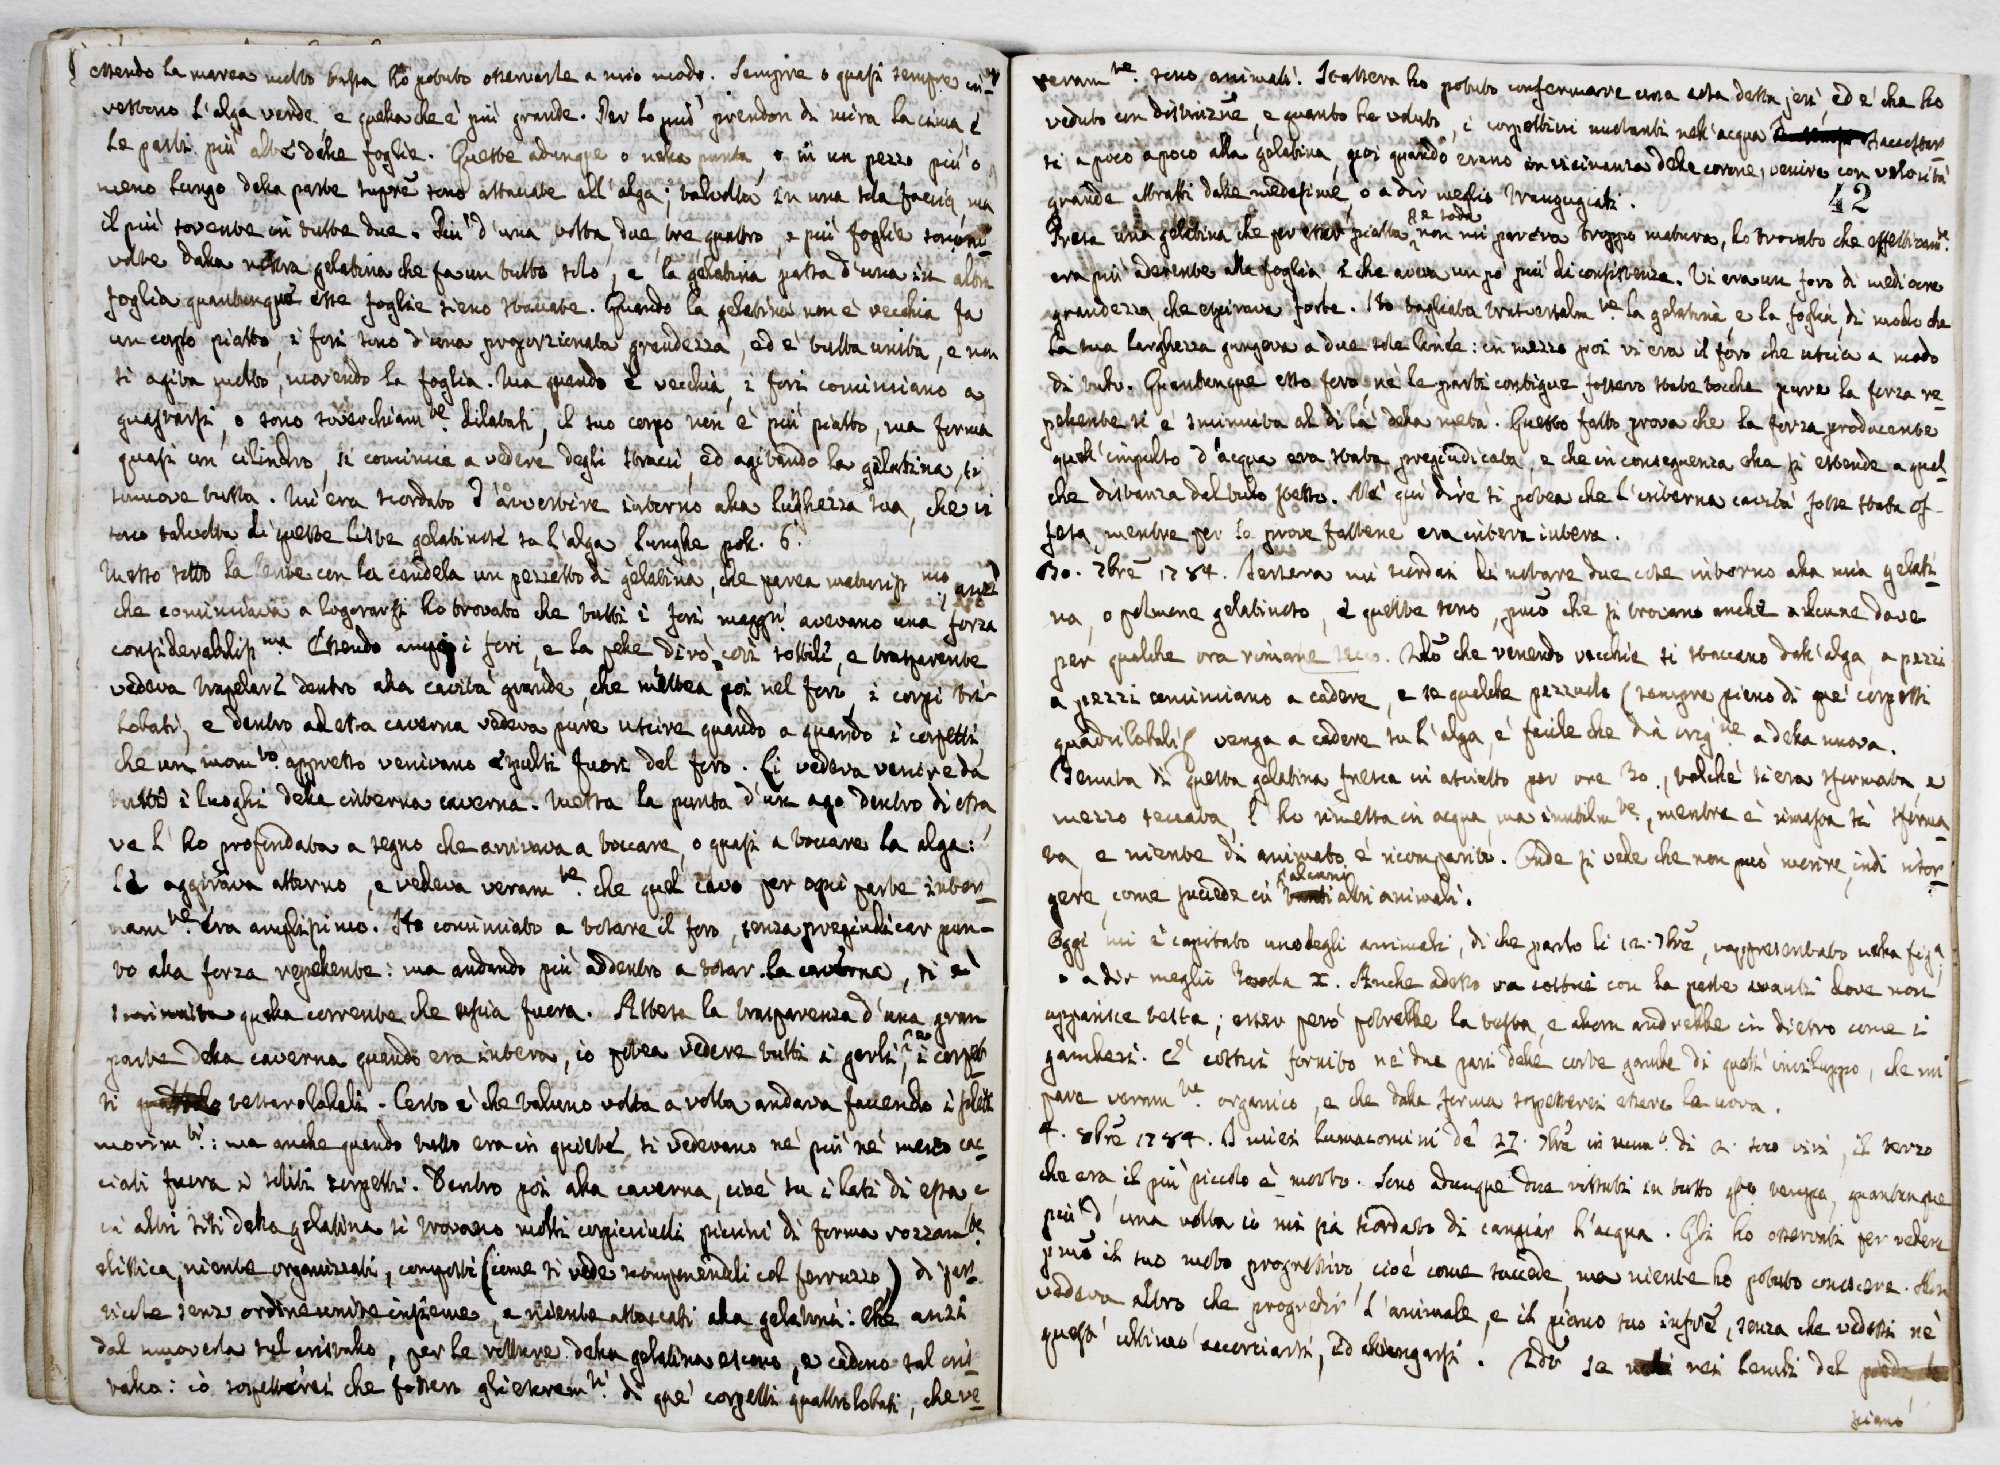 essendo la marea molto bassa ho potuto osservarle a mio modo. Sempre o quasi sempre in
vestono l'alga verde e quella che è più grande. Per lo più prendon di mira la cima e
le parti più alte delle foglie. Queste adunque o nella punta, o in un pezzo più o
meno lungo della parte supre sono attaccate all'alga; talvolta in una sola faccia, ma
il più sovente in tutte due. Più d'una volta due tre quattro, e più foglie sono in
volte dalla nostra gelatina che fa un tutto solo, e la gelatina passa d'una in altra
foglia quantunque esse foglie sieno staccate. Quando la gelatina non è vecchia fa
un corpo piatto, i fori sono d'una proporzionata grandezza, ed è tutta unita, e non
si agita molto, movendo la foglia. Ma quando è vecchia, i fori cominciano a
guastarsi, o sono soverchiamte dilatati, il suo corpo non è più piatto, ma forma
quasi un cilindro, si comincia a vedere degli stracci, ed agitando la gelatina, si
smove tutta. Mi era scordato d'avvertire intorno alla lughezza sua, che vi
sono talvolta di queste liste gelatinose su l'alga lunghe poll. 6.
Messo sotto la lente con la candela un pezzetto di gelatina, che parea maturissmo, anzi
che cominciava a logorarsi ho trovato che tutti i fori maggri avevano una forza
considerabilissma Essendo ampj i fori, e la pelle dirò così sottile, e trasparente
vedeva trapelarsi dentro alla cavità grande, che mettea poi nel foro, i corpi tri-
lobati, e dentro ad essa caverna vedeva pure uscire quando a quando i corpetti
che un momto appresso venivano espulsi fuori del foro. Li vedeva venire da
tutti i luoghi della interna caverna. Messa la punta d'un ago dentro di essa
ve l'ho profondata a segno che arrivava a toccare, o quasi a toccare la alga:
lì aggirava attorno, e vedeva veramte che quel cavo per ogni parte inter-
namte era amplissimo. Ho cominciato a votare il foro, senza pregiudicar pun-
to alla forza repellente: ma andando più addentro a votar la caverna, si è
sminuita quella corrente che uscia fuora. Attesa la trasparenza d'una gran
parte della caverna quando era intera, io potea vedere tutti i gorli, i corpet
ti tettarolobati. Certo è che taluno volta a volta andava facendo i soliti
movimti: ma anche quando tutto era in quiete, si vedevano nè più nè meno cac
ciati fuora i soliti corpetti. Dentro poi alla caverna, cioè su i lati di essa e
in altri siti della gelatina si trovano molti corpicciuoli piccini di forma rozzamte
elittica, niente organizzati, composti (come si vede scomponendoli col ferruzzo) di par
ticole senz ordine unite insieme, e niente attaccati alla gelatina: che anzi
dal muoverla sul cristallo, per le rotture della gelatina escono, e cadono sul cris
tallo: io sospetterei che fossero gli escremti di que' corpetti quattrolobati, che ve
veramte sono animali. Stassera ho potuto confermare una cosa detta jeri, ed è che ho
veduto con distinzne, e quanto ho voluto, i corpettini nuotanti nell'acqua s'accostar
si a poco a poco alla gelatina, poi quando erano in vicinanza delle corone, venire con velocità
grande attratti dalle medesime, o a dir meglio trangugiati.
42
Presa una gelatina che per esser piatta, e soda non mi pareva troppo matura, ho trovato che effettivamte
era più aderente alla foglia, e che aveva un po più di consistenza. Vi era un foro di mediocre
grandezza, che espirava forte. Ho tagliata trasversalmte la gelatina, e la foglia, di modo che
la sua larghezza giungeva a due sole linee: in mezzo poi vi era il foro che uscia a modo
di tubo. Quantunque esso foro, nè le parti contigue fossero state tocche pure la forza re-
pellente si è sminuita al di là della metà. Questo fatto prova che la forza producente
quell'impulso d'acqua era stata pregiudicata, e che in conseguenza ella si estende a qual
che distanza dal tubo stesso. Nè qui dire si potea che l'interna cavità fosse stata of-
fesa, mentre per le prove fattene era interra intera.
30. 7bre 1784. Jersera mi scordai di notare due cose intorno alla mia gelati-
na, o polmone gelatinoso, e queste sono, pmo che si trovano anche alcune dove
per qualche ora rimane secco. 2do che venendo vecchie si staccano dall'alga, a pezzi
a pezzi cominciano a cadere, e se qualche pezzuolo (sempre pieno di que' corpetti
quadrilobati) venga a cadere su l'alga, è facile che dia origne a della nuova.
Tenuta di questa gelatina fresca in asciutto per ore 30., talchè si era sformata, e
mezzo seccata, l'ho rimessa in acqua, ma inutilmte, mentre è rimasta sì sforma-
ta, e niente di animato è ricomparito. Onde si vede che non può morire, indi risor-
gere, come succede in alcuni altri animali.
Oggi mi è capitato uno degli animali, di che parlo li 12. 7bre, rappresentato nella figa,
o a dir meglio tavola X. Anche adesso va costui con la parte avanti dove non
apparisce testa; esser però potrebbe la testa, e allora andrebbe in dietro come i
gamberi. È costui fornito ne' due pari delle corte gambe di questi inviluppo, che mi
pare veramte organico, e che dalla forma sospetterei essere le uova.
4. 8bre 1784. I miei lumaconcini de' 27. 7bre in numo di 2. sono vivi, il terzo
che era il più piccolo è morto. Sono adunque due vissuti in tutto qto tempo, quantunque
più d'una volta io mi sia scordato di cangiar l'acqua. Gli ho osservati per vedere
pmo il suo moto progressivo, cioè come succede, ma niente ho potuto conoscere. Non
vedeva altro che progredir l'animale, e il piano suo infre, senza che vedessi nè
quest' ultimo accorciarsi, ed allungarsi. 2do se nei lembi del